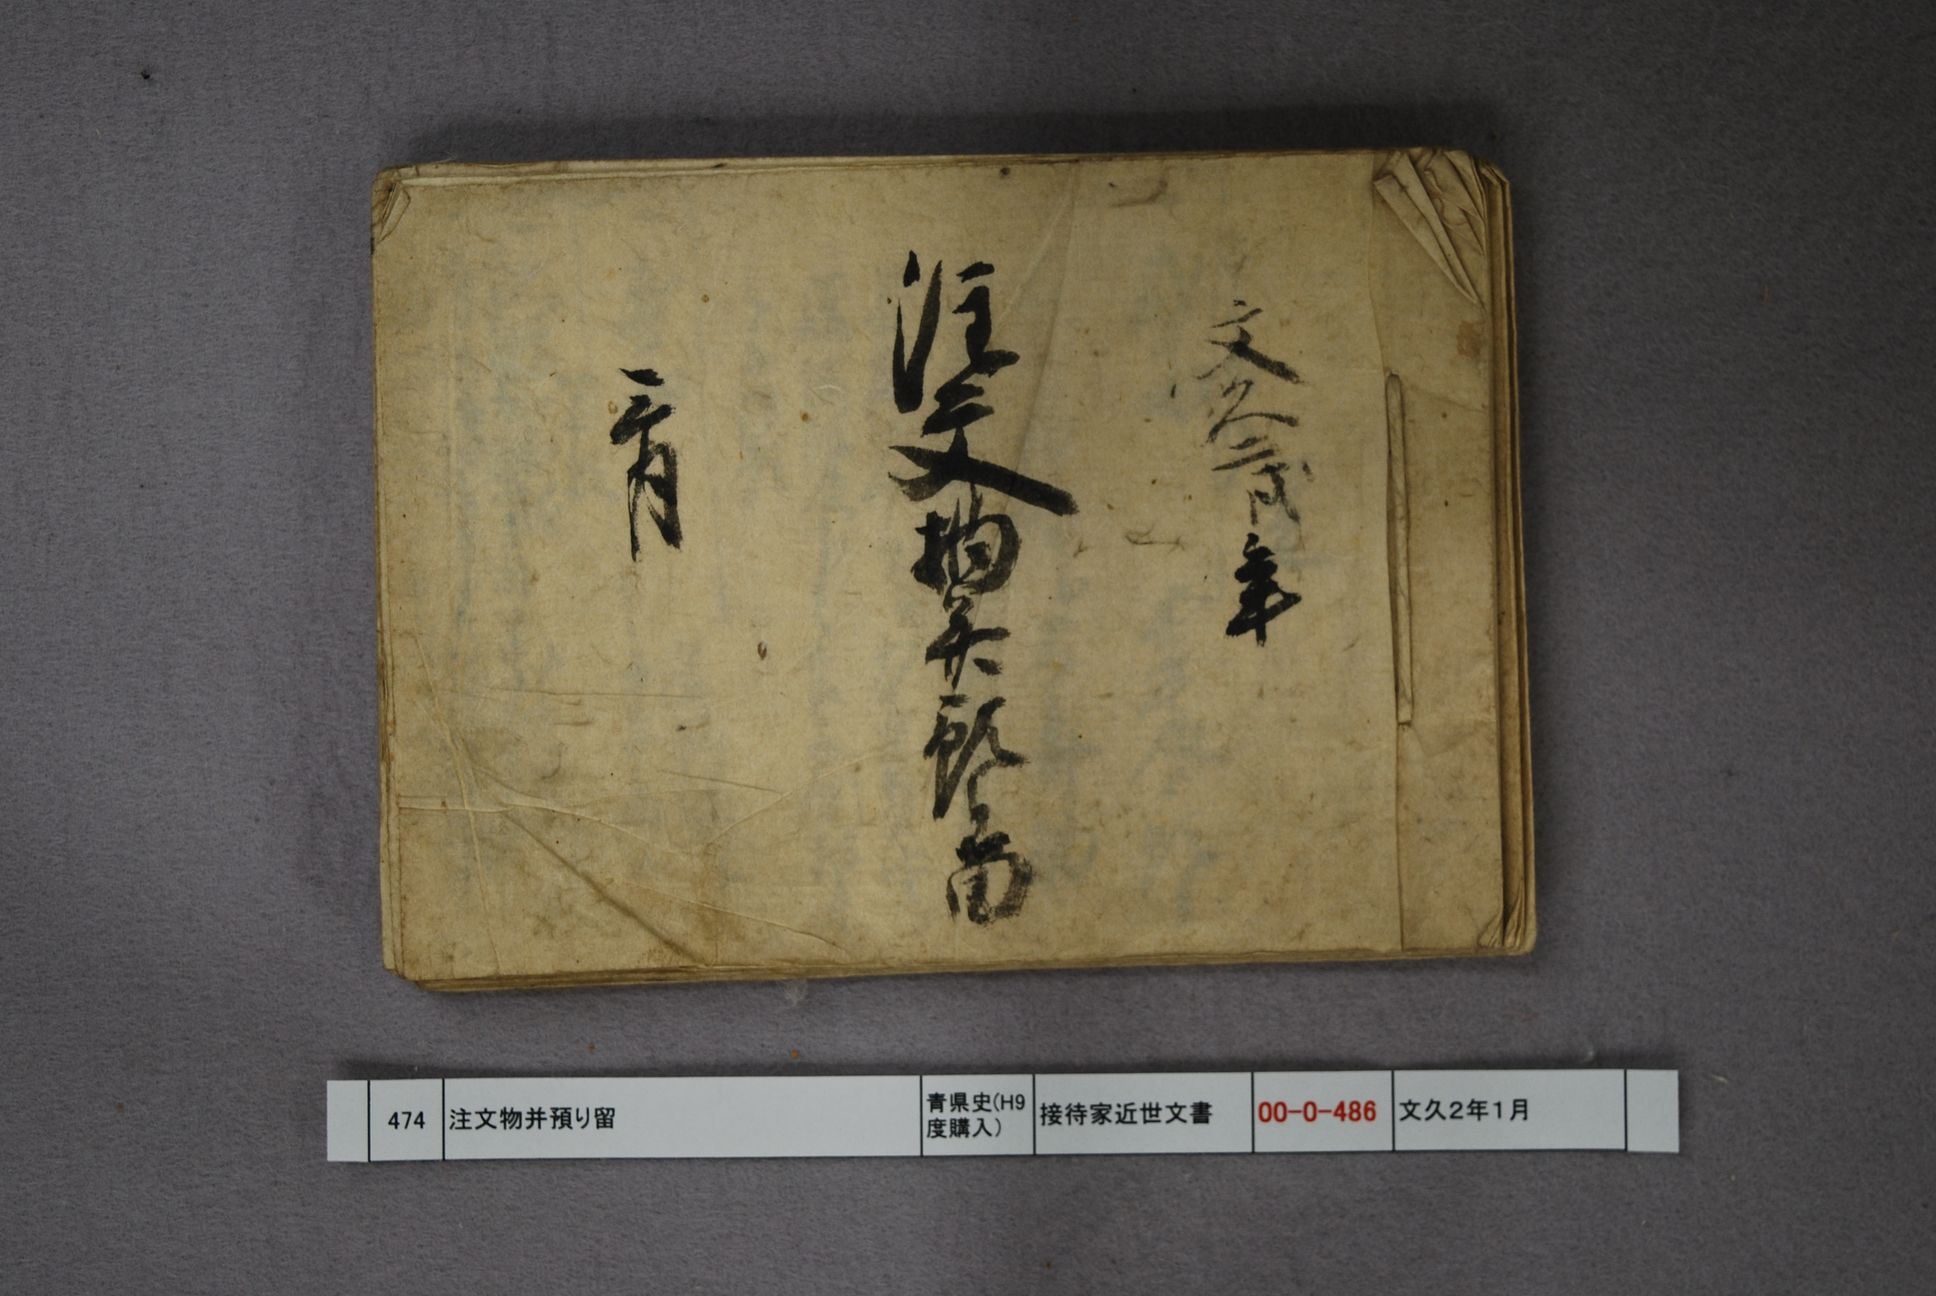 文久二戌年
注文物并預り留
正月
474
注文物并預り留
青県史(H9
度購入)
接待家近世文書
00-0-486
文久2年1月